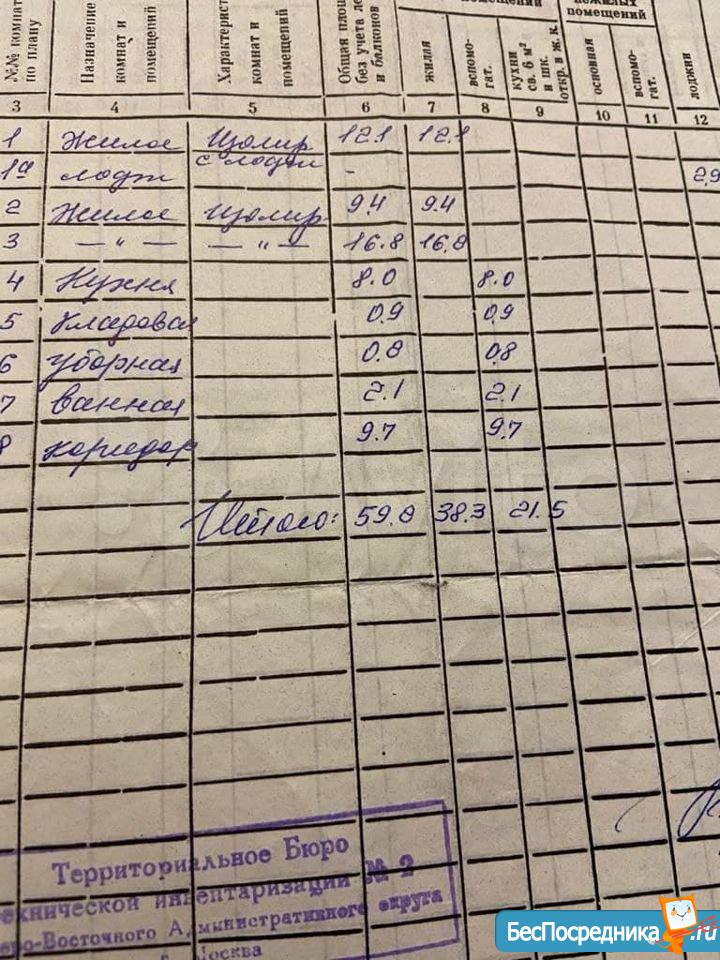 помещений нежилых
помещений
№№ комнат по плану | Назначение комнат и помещений | Характерист комнат и помещений | Общая площ без учета ло и балконов | жилая | вспомо- гат. | кухни св. 6 м² и шк. откр. в ж. к. | основная | вспомо- гат. | лоджии
3 4 5 6 7 8 9 10 11 12
1 Жилое Изолир 12.1 12.1
с лодж
1а лодж - 2,9
2 Жилое Изолир 9.4 9.4
3 — " — — " — 16.8 16.8
4 Кухня 8.0 8.0
5 Кладовая 0,9 0,9
6 Уборная 0.8 0,8
7 Ванная 2.1 2.1
8 коридор 9.7 9.7
Итого: 59.8 38.3 21.5
Территориальное Бюро
технической инвентаризации № 2
еверо-Восточного Административного округа
г. Москва
БесПосредника.ru